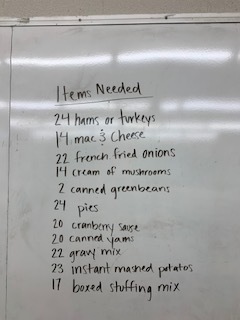 Items Needed
24 hams or turkeys
14 mac & Cheese
22 french fried onions
14 cream of mushrooms
2 canned greenbeans
24 pies
20 cranberry sause
20 canned yams
22 gravy mix
23 instant mashed potatos
17 boxed stuffing mix